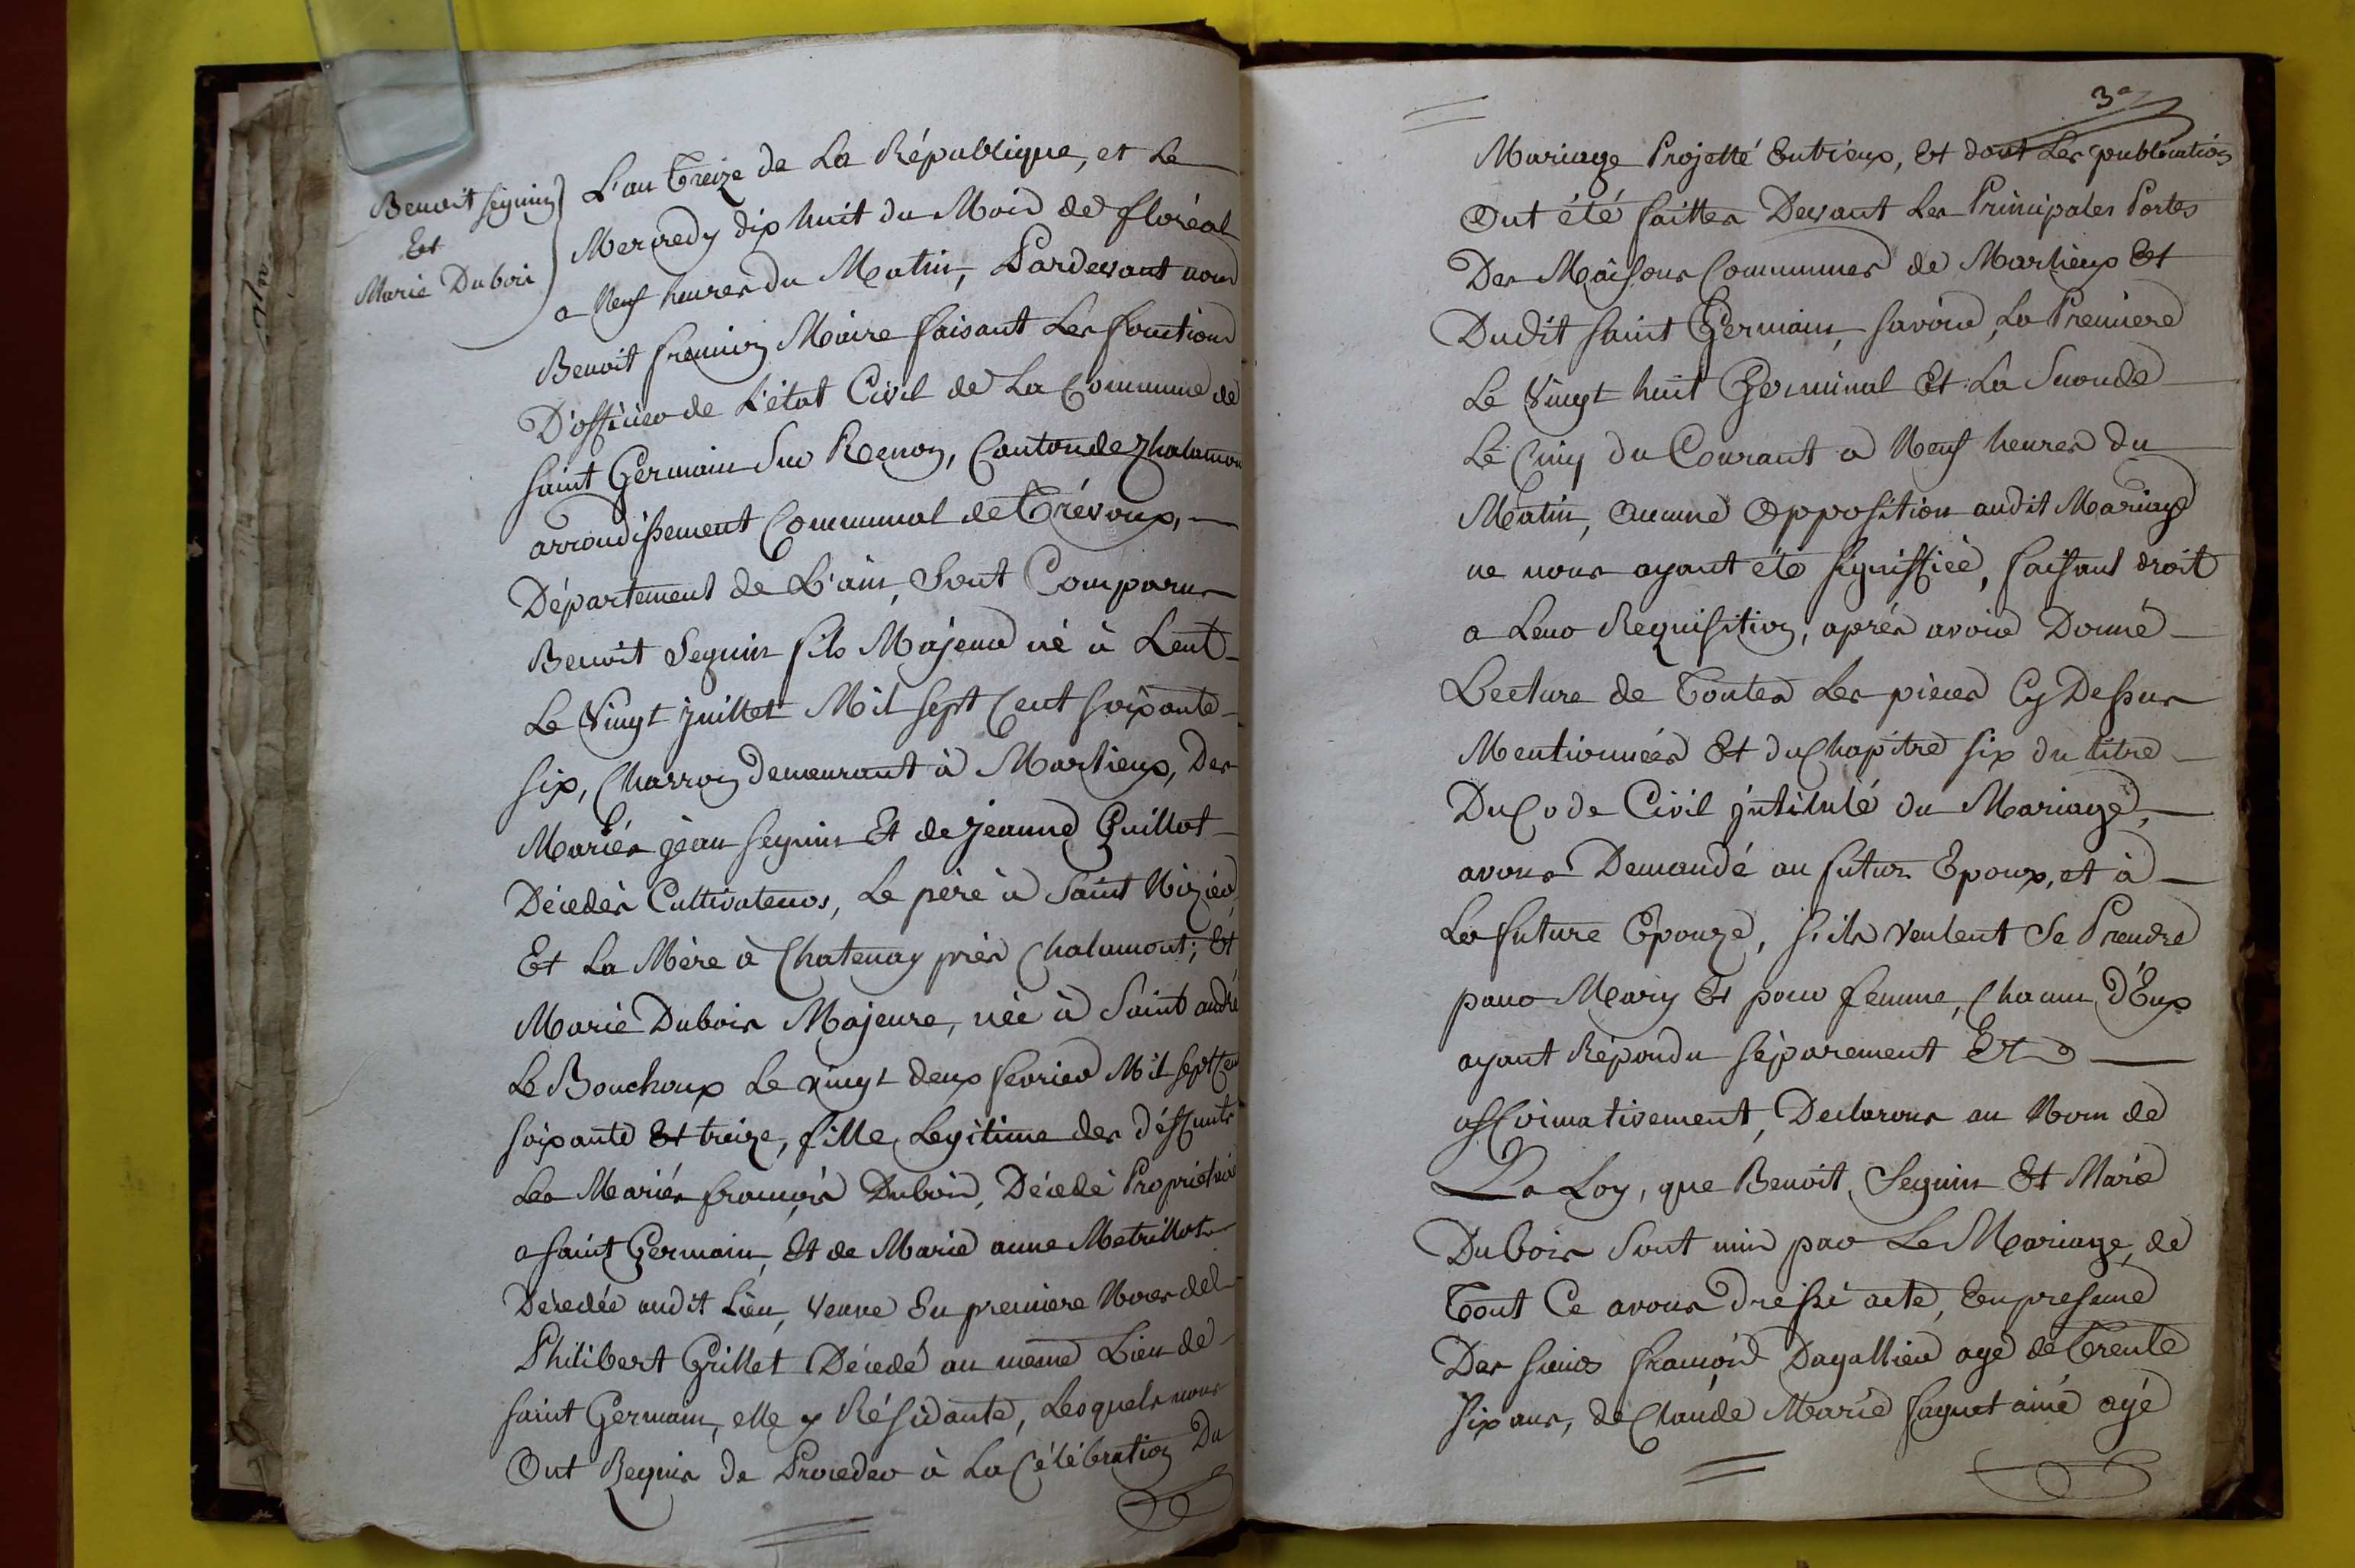 Benoit Seguin
Et
Marie Dubois
L'an Treize de La République, et Le
Mercredy dix huit du Mois de floréal
a Neuf heures du Matin, Pardevant nous
Benoit Maire faisant Les fonctions
D'officier de L'état Civil de La Commune de
Saint Germain Sur Renon, Canton de Chalamon
arrondissement Communal de Trévoux,
Département de L'ain, Sont Comparus
Benoit Seguin fils Majeur né à Lent
Le Vingt juillet Mil Sept Cent Soixante
Six, Charron demeurant à Marlieux, Des
Mariés jean Seguin Et de jeanne Guillot
Décédés Cultivateurs, Le père à Saint Nizier,
Et La Mère à Chatenay près Chalamont; Et
Marie Dubois Majeure, née à Saint andré
Le Bouchoux Le vingt deux fevrier Mil Sept Cen
Soixante Et treize, fille Legitime des déffunts
Les Mariés françois Dubois, Décédé Propriétaire
a Saint Germain, Et de Marie anne Metrillot
Décédée audit Lieu, Veuve En premiere Noces de
Philibert Grillet Décédé au même Lieu de
Saint Germain, elle y Résidante, Lesquels nous
Ont Requis de Proceder à La Célébration Du
3
Mariage Projetté Entr'eux, Et dont Les publications
Ont été faittes Devant Les Principales Portes
Des Maisons Communes de Marlieux Et
Dudit Saint Germain, Savoir, La Premiere
Le Vingt huit Germinal Et La Seconde
Le Cinq du Courant a Neuf heures du
Matin, aucune Opposition audit Mariage
ne nous ayant été Signiffiée, faisant droit
a Leur Requisition, aprés avoir Donné
Lecture de Toutes Les pieces Cy Dessus
Mentionnées Et du Chapitre Six du titre
Du Code Civil jntitulé du Mariage,
avons Demandé au futur Epoux, et à
La future Epouze, S'ils veulent Se Prendre
pour Mary Et pour femme, Chacun d'Eux
ayant Répondu Séparement Et
affirmativement, Declarons au Nom de
La Loy, que Benoit Seguin Et Marie
Dubois Sont unis par Le Mariage, de
Tout Ce avons Dressé acte, En presence
Des Sieurs françois Dagallier agé de Trente
Six ans, de Claude Marie Saquet ainé agé